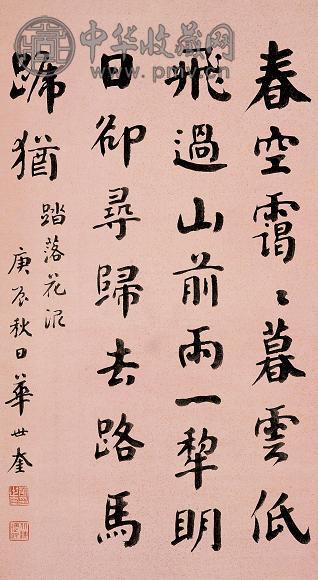 中华收藏网
春空靄〻暮雲低
飛過山前雨一犂明
日卻尋歸去路馬
蹄猶
踏落花泥
庚辰秋日華世奎